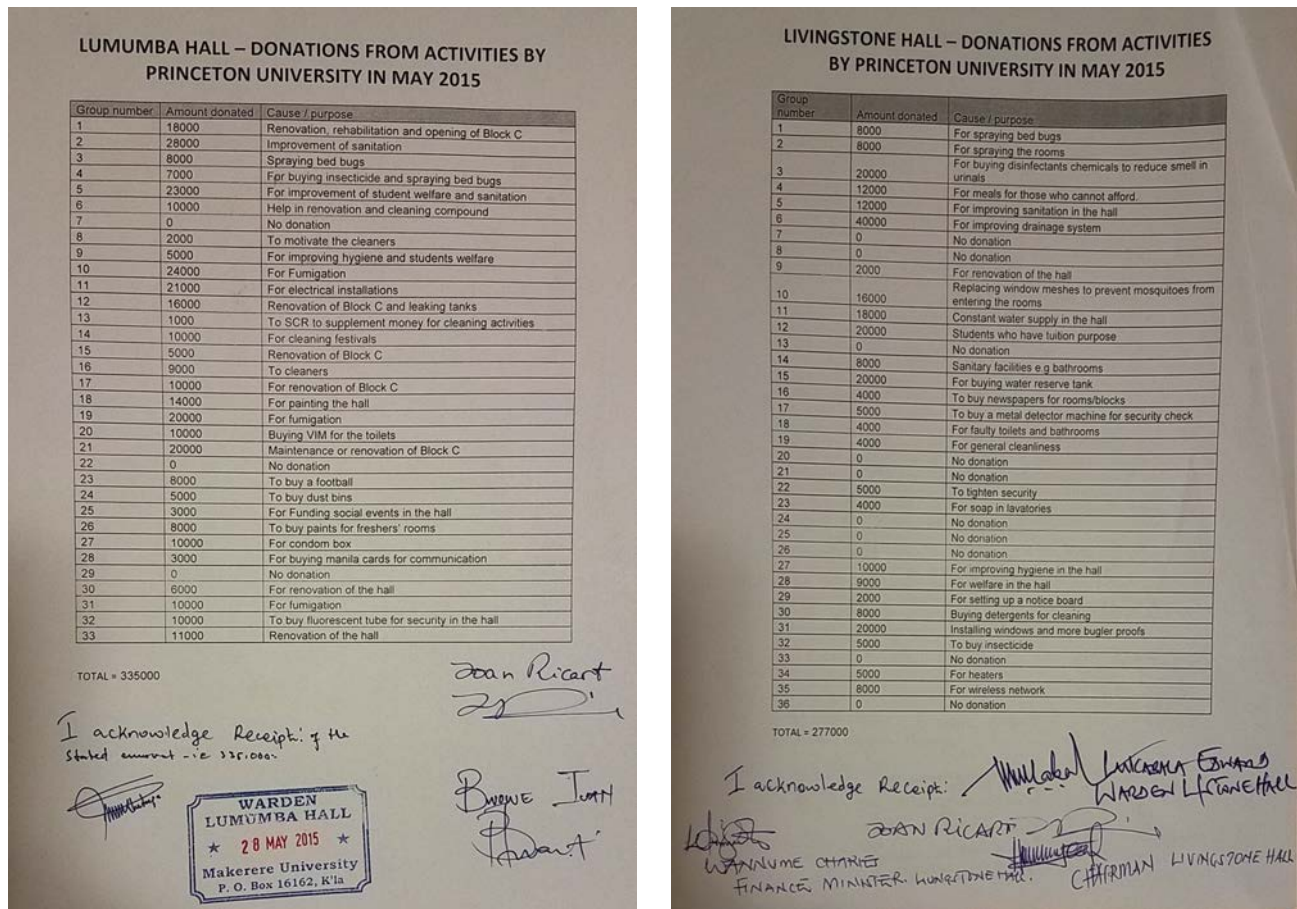 LUMUMBA HALL – DONATIONS FROM ACTIVITIES BY
PRINCETON UNIVERSITY IN MAY 2015
Group number Amount donated Cause / purpose
1 18000 Renovation, rehabilitation and opening of Block C
2 28000 Improvement of sanitation
3 8000 Spraying bed bugs
4 7000 For buying insecticide and spraying bed bugs
5 23000 For improvement of student welfare and sanitation
6 10000 Help in renovation and cleaning compound
7 0 No donation
8 2000 To motivate the cleaners
9 5000 For improving hygiene and students welfare
10 24000 For Fumigation
11 21000 For electrical installations
12 16000 Renovation of Block C and leaking tanks
13 1000 To SCR to supplement money for cleaning activities
14 10000 For cleaning festivals
15 5000 Renovation of Block C
16 9000 To cleaners
17 10000 For renovation of Block C
18 14000 For painting the hall
19 20000 For fumigation
20 10000 Buying VIM for the toilets
21 20000 Maintenance or renovation of Block C
22 0 No donation
23 8000 To buy a football
24 5000 To buy dust bins
25 3000 For Funding social events in the hall
26 8000 To buy paints for freshers' rooms
27 10000 For condom box
28 3000 For buying manila cards for communication
29 0 No donation
30 6000 For renovation of the hall
31 10000 For fumigation
32 10000 To buy fluorescent tube for security in the hall
33 11000 Renovation of the hall
TOTAL = 335000
Joan Ricart
I acknowledge Receipt: of the
Stated amount -ie 335,000-
Bwowe Ivan
WARDEN
LUMUMBA HALL
28 MAY 2015
Makerere University
P. O. Box 16162, K'la
LIVINGSTONE HALL – DONATIONS FROM ACTIVITIES
BY PRINCETON UNIVERSITY IN MAY 2015
Group
number Amount donated Cause / purpose
1 8000 For spraying bed bugs
2 8000 For spraying the rooms
3 20000 For buying disinfectants chemicals to reduce smell in
urinals
4 12000 For meals for those who cannot afford.
5 12000 For improving sanitation in the hall
6 40000 For improving drainage system
7 0 No donation
8 0 No donation
9 2000 For renovation of the hall
10 16000 Replacing window meshes to prevent mosquitoes from
entering the rooms
11 18000 Constant water supply in the hall
12 20000 Students who have tuition purpose
13 0 No donation
14 8000 Sanitary facilities e.g bathrooms
15 20000 For buying water reserve tank
16 4000 To buy newspapers for rooms/blocks
17 5000 To buy a metal detector machine for security check
18 4000 For faulty toilets and bathrooms
19 4000 For general cleanliness
20 0 No donation
21 0 No donation
22 5000 To tighten security
23 4000 For soap in lavatories
24 0 No donation
25 0 No donation
26 0 No donation
27 10000 For improving hygiene in the hall
28 9000 For welfare in the hall
29 2000 For setting up a notice board
30 8000 Buying detergents for cleaning
31 20000 Installing windows and more bugler proofs
32 5000 To buy insecticide
33 0 No donation
34 5000 For heaters
35 8000 For wireless network
36 0 No donation
TOTAL = 277000
I acknowledge Receipt: EDWARD
WARDEN L/STONE HALL
JOAN RICART
WANNUME CHARLES
FINANCE MINISTER LIVINGSTONE HALL.
CHAIRMAN LIVINGSTONE HALL